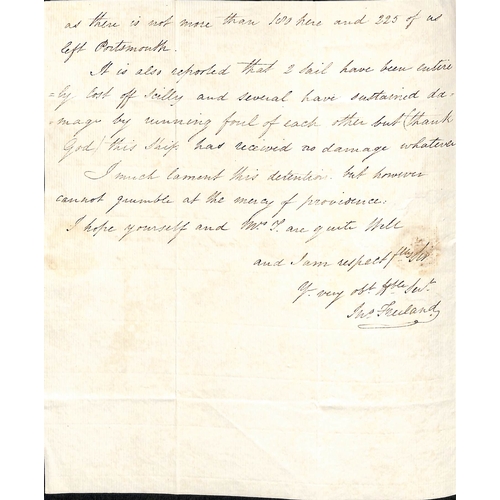 as there is not more than 180 here and 225 of us
left Portsmouth.
It is also reported that 2 sail have been entire
=ly lost off Scilly and several have sustained da-
-mage by running foul of each other but (thank
God) this Ship has received no damage whatever
I much lament this detention but however
cannot grumble at the mercy of providence.
I hope yourself and Mrs T. are quite Well
and I am respectflly Sir
Yr very obt Hble Servt.
Jno Freeland